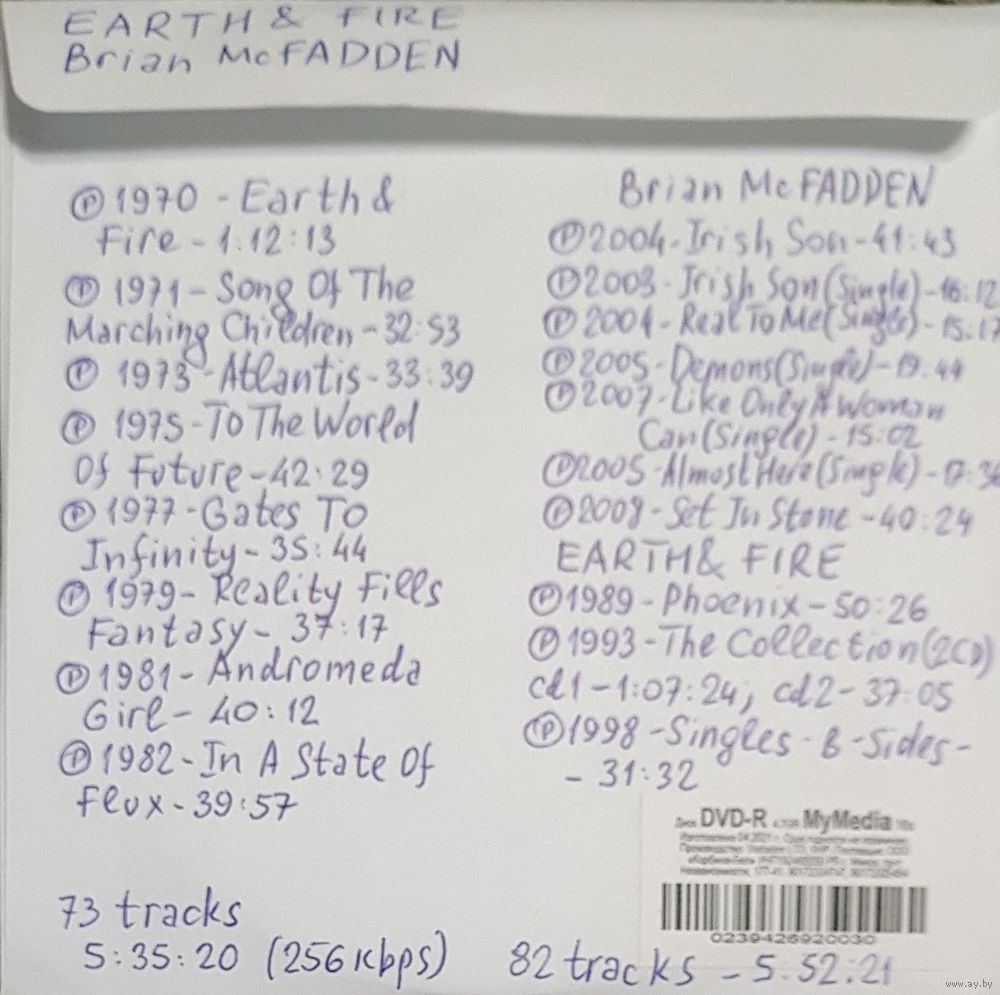 EARTH & FIRE
Brian McFADDEN
℗ 1970 - Earth &
Fire - 1:12:13
℗ 1971 - Song Of The
Marching Children - 32:53
℗ 1973 - Atlantis - 33:39
℗ 1975 - To The World
Of Future - 42:29
℗ 1977 - Gates To
Infinity - 35:44
℗ 1979 - Reality Fills
Fantasy - 37:17
℗ 1981 - Andromeda
Girl - 40:12
℗ 1982 - In A State Of
Flux - 39:57
73 tracks
5:35:20 (256 kbps)
Brian McFADDEN
℗ 2004 - Irish Son - 41:43
℗ 2003 - Irish Son (Single) - 16:12
℗ 2004 - Real To Me (Single) - 15:17
℗ 2005 - Demons (Single) - 19:44
℗ 2007 - Like Only A Woman
Can (Single) - 15:02
℗ 2005 - Almost Here (Single) - 17:36
℗ 2008 - Set In Stone - 40:24
EARTH & FIRE
℗ 1989 - Phoenix - 50:26
℗ 1993 - The Collection (2CD)
cd1 - 1:07:24, cd2 - 37:05
℗ 1998 - Singles - B-Sides -
- 31:32
Диск DVD-R MyMedia
0239426920030
82 tracks - 5:52:21
www.ay.by